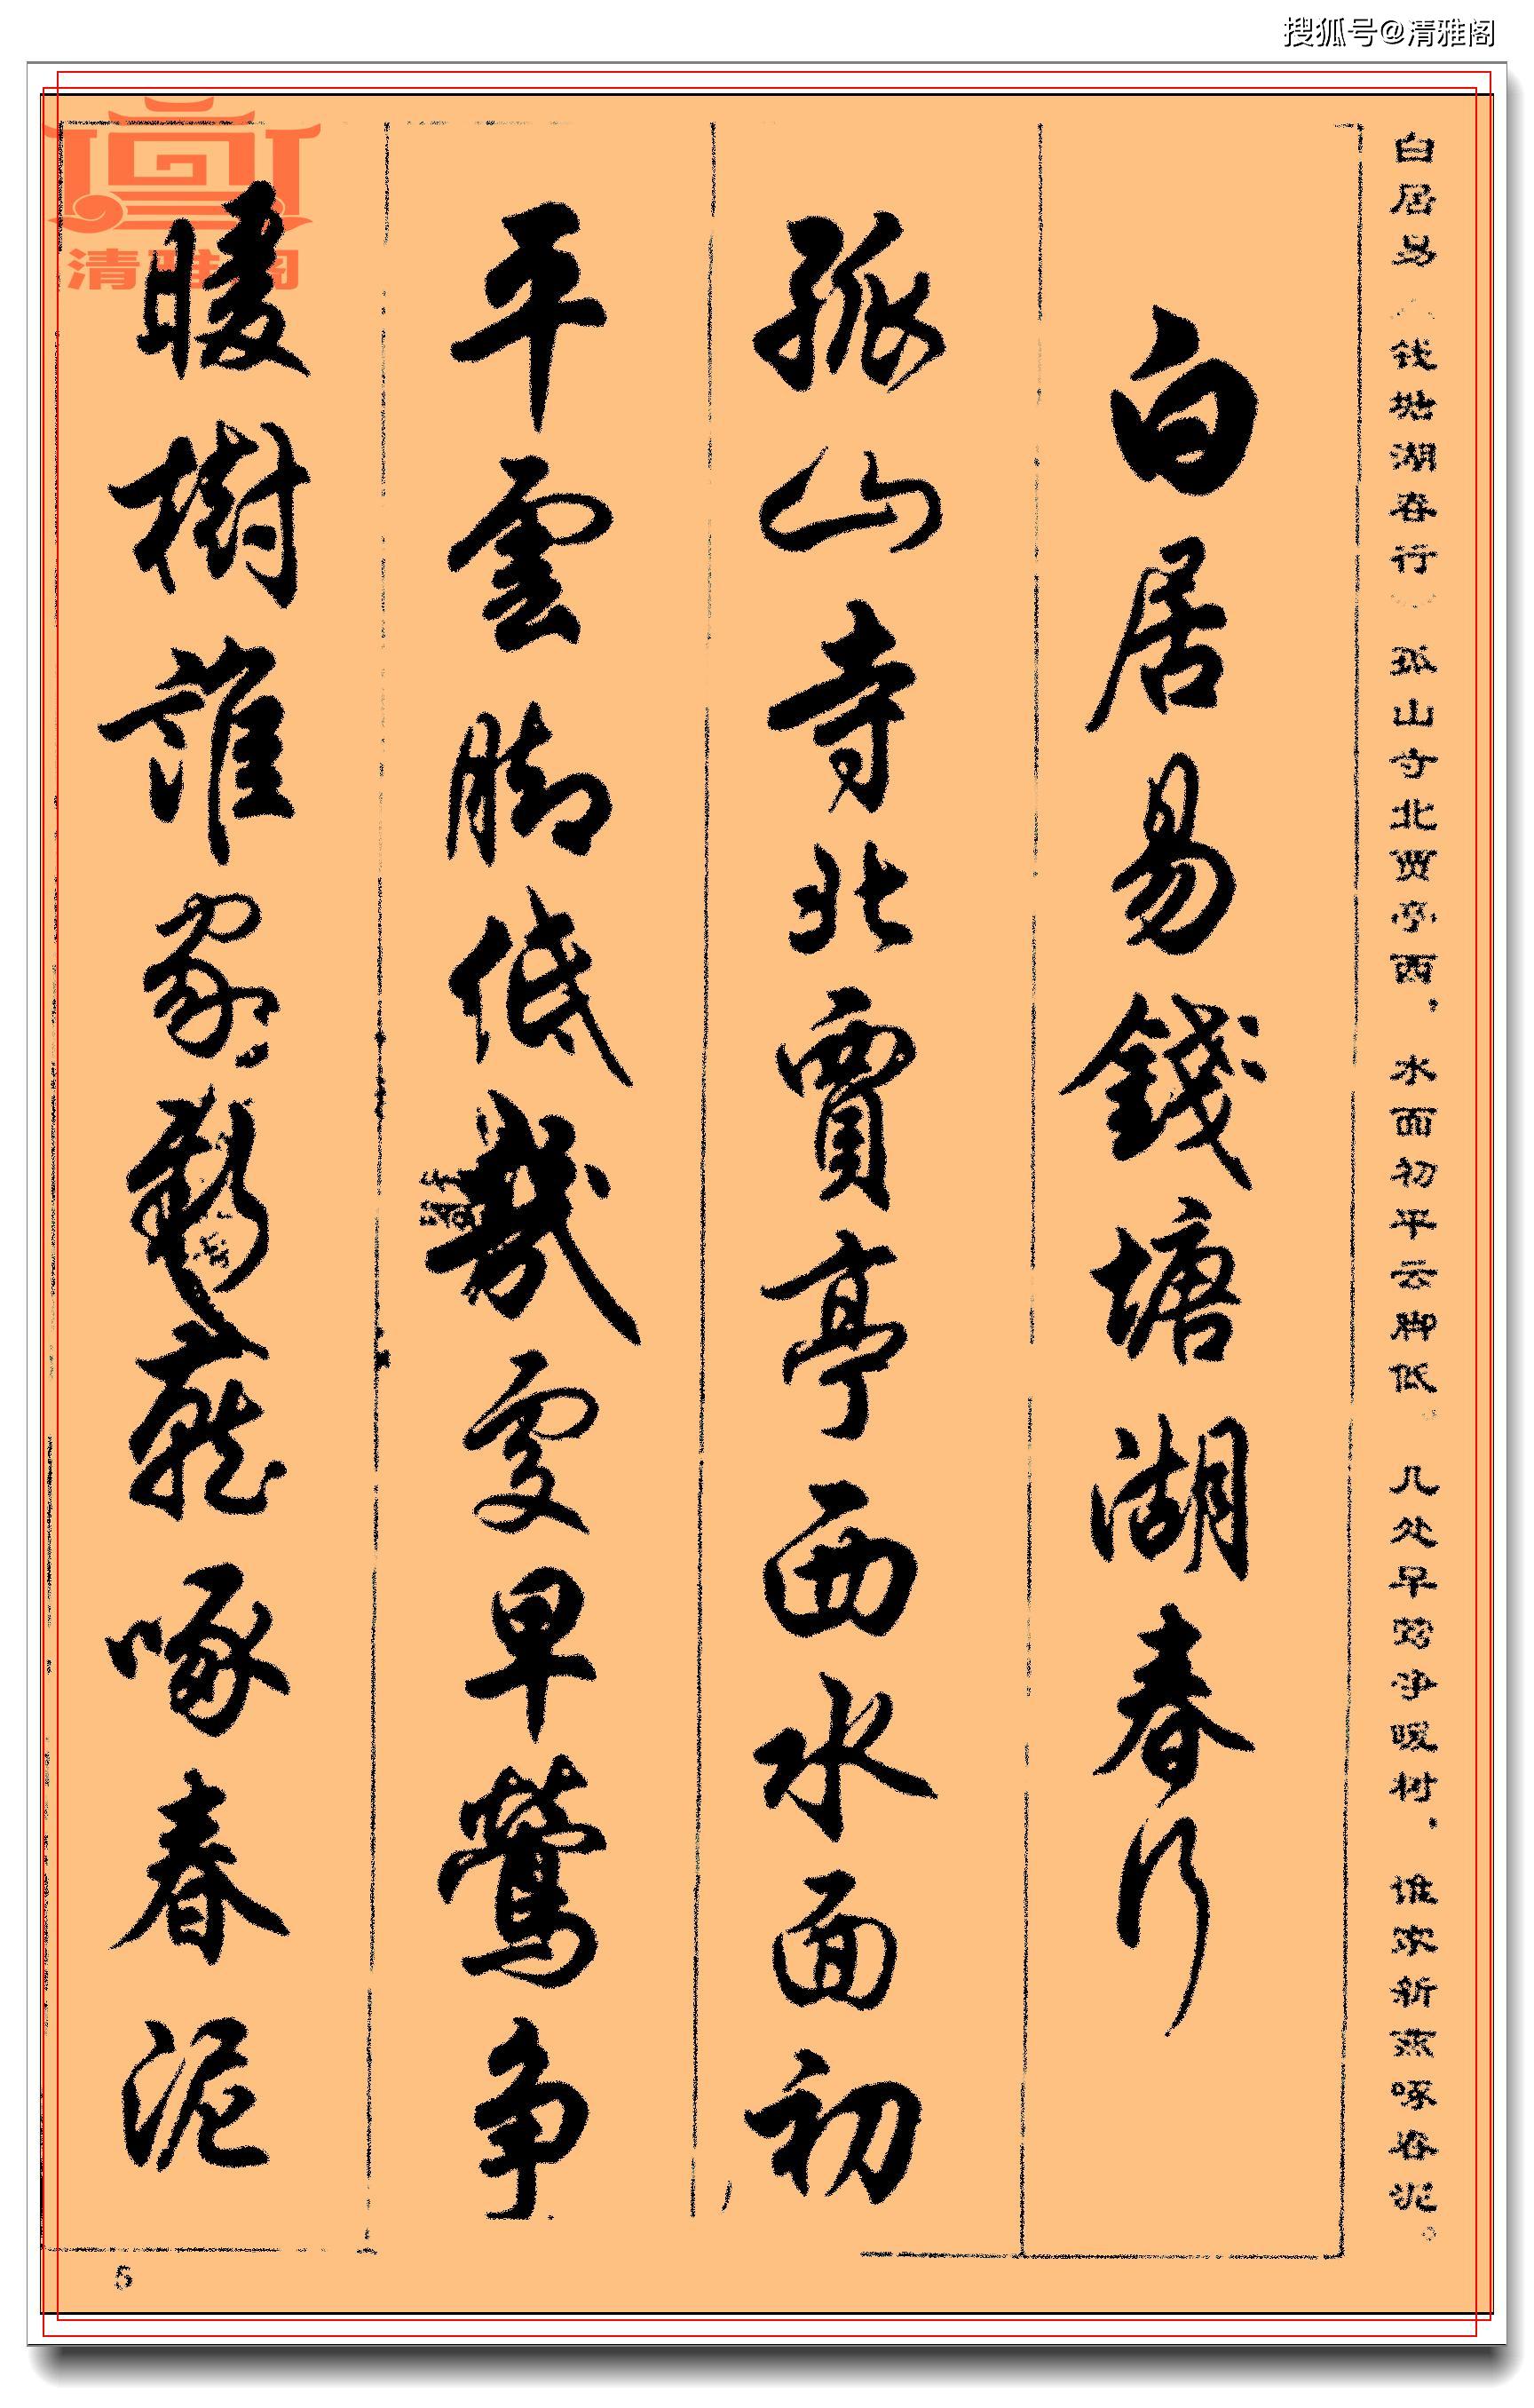 搜狐号@清雅阁
白居易《钱塘湖春行》孤山寺北贾亭西，水面初平云脚低。几处早莺争暖树，谁家新燕啄春泥。
白居易錢塘湖春行
孤山寺北賈亭西水面初
平雲脚低幾處早鶯争
暖樹誰家新燕啄春泥
清雅阁
5